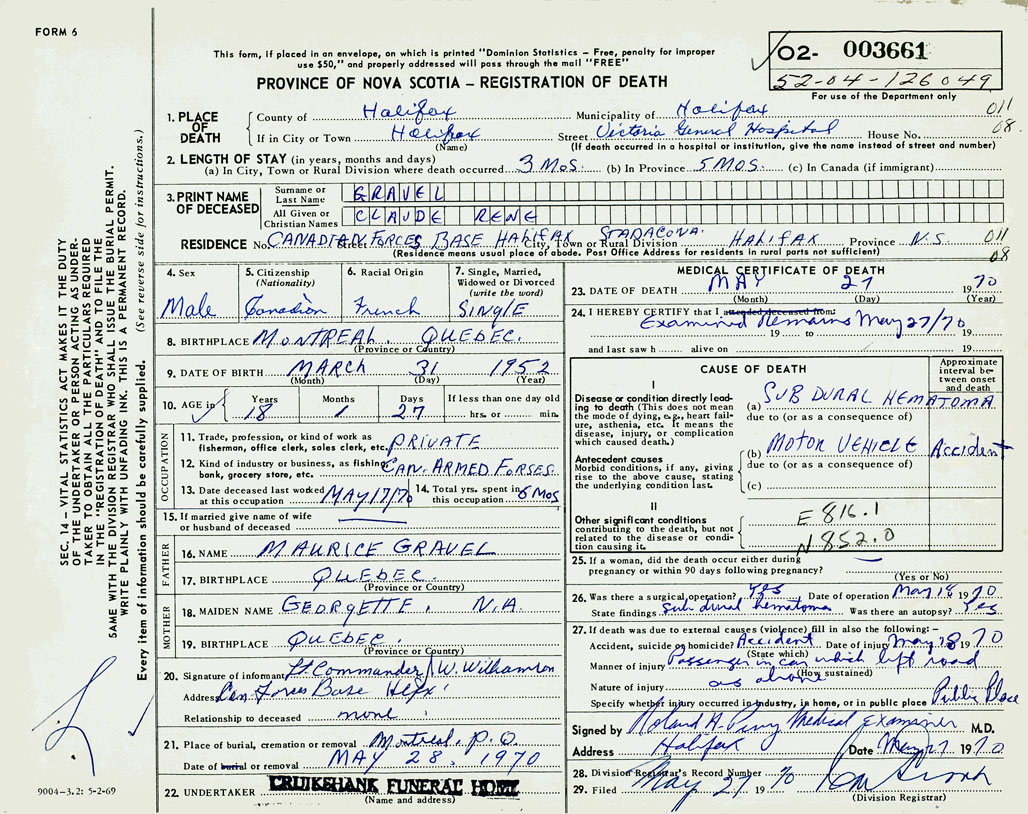 FORM 6
This form, if placed in an envelope, on which is printed "Dominion Statistics – Free, penalty for improper
use $50," and properly addressed will pass through the mail "FREE"
PROVINCE OF NOVA SCOTIA – REGISTRATION OF DEATH
02- 003661
52-04-126049
For use of the Department only
SEC. 14 – VITAL STATISTICS ACT MAKES IT THE DUTY
OF THE UNDERTAKER OR PERSON ACTING AS UNDER-
TAKER TO OBTAIN ALL THE PARTICULARS REQUIRED
IN THE "REGISTRATION OF DEATH" AND TO FILE THE
SAME WITH THE DIVISION REGISTRAR WHO SHALL ISSUE THE BURIAL PERMIT.
WRITE PLAINLY WITH UNFADING INK. THIS IS A PERMANENT RECORD.
Every item of information should be carefully supplied. (See reverse side for instructions.)
1. PLACE OF DEATH
County of Halifax Municipality of Halifax 011
If in City or Town Halifax Street Victoria General Hospital House No. 08.
(Name) (If death occurred in a hospital or institution, give the name instead of street and number)
2. LENGTH OF STAY (in years, months and days)
(a) In City, Town or Rural Division where death occurred 3 Mos. (b) In Province 5 MOS. (c) In Canada (if immigrant)
3. PRINT NAME OF DECEASED
Surname or Last Name GRAVEL
All Given or Christian Names CLAUDE RENE
RESIDENCE No. CANADIAN FORCES BASE HALIFAX STADACONA. Street City, Town or Rural Division HALIFAX Province N.S. 011
(Residence means usual place of abode. Post Office Address for residents in rural parts not sufficient) 08
4. Sex Male
5. Citizenship (Nationality) Canadian
6. Racial Origin French
7. Single, Married, Widowed or Divorced (write the word) SINGLE
8. BIRTHPLACE MONTREAL QUEBEC.
(Province or Country)
9. DATE OF BIRTH MARCH 31 1952
(Month) (Day) (Year)
10. AGE in Years 18 Months 1 Days 27 If less than one day old hrs. or min.
OCCUPATION
11. Trade, profession, or kind of work as
fisherman, office clerk, sales clerk, etc. PRIVATE
12. Kind of industry or business, as fishing,
bank, grocery store, etc. CAN. ARMED FORSES.
13. Date deceased last worked
at this occupation MAY/17/70
14. Total yrs. spent in
this occupation 6 Mos
15. If married give name of wife
or husband of deceased
FATHER
16. NAME MAURICE GRAVEL
17. BIRTHPLACE QUEBEC.
(Province or Country)
MOTHER
18. MAIDEN NAME GEORGETTE. N.A.
19. BIRTHPLACE QUEBEC.
(Province or Country)
20. Signature of informant Lt Commander W. Williamson
Address Can Forces Base Hfx.
Relationship to deceased none
21. Place of burial, cremation or removal Montreal, P.Q.
Date of burial or removal MAY 28, 1970
22. UNDERTAKER CRUIKSHANK FUNERAL HOME
(Name and address)
9004-3.2: 5-2-69
MEDICAL CERTIFICATE OF DEATH
23. DATE OF DEATH MAY 27 1970
(Month) (Day) (Year)
24. I HEREBY CERTIFY that I attended deceased from:
Examined Remains May 27/70
19 to 19
and last saw h alive on 19
CAUSE OF DEATH
Approximate interval between onset and death
I
Disease or condition directly leading to death (This does not mean the mode of dying, e.g., heart failure, asthenia, etc. It means the disease, injury, or complication which caused death.)
(a) SUB DURAL HEMATOMA
due to (or as a consequence of)
Antecedent causes
Morbid conditions, if any, giving rise to the above cause, stating the underlying condition last.
(b) MOTOR VEHICLE Accident
due to (or as a consequence of)
(c)
II
Other significant conditions contributing to the death, but not related to the disease or condition causing it.
E 816.1
N 852.0
25. If a woman, did the death occur either during
pregnancy or within 90 days following pregnancy?
(Yes or No)
26. Was there a surgical operation? Yes Date of operation May 18 1970
State findings Sub dural hematoma Was there an autopsy? Yes
27. If death was due to external causes (violence) fill in also the following: –
Accident, suicide or homicide? Accident Date of injury May 18 1970
(State which)
Manner of injury Passenger in car which left road
(How sustained)
Nature of injury as above
Specify whether injury occurred in industry, in home, or in public place Public Place
Signed by Roland A. Medical Examiner M.D.
Address Halifax Date May 27 1970
28. Division Registrar's Record Number
29. Filed May 27 1970
(Division Registrar)